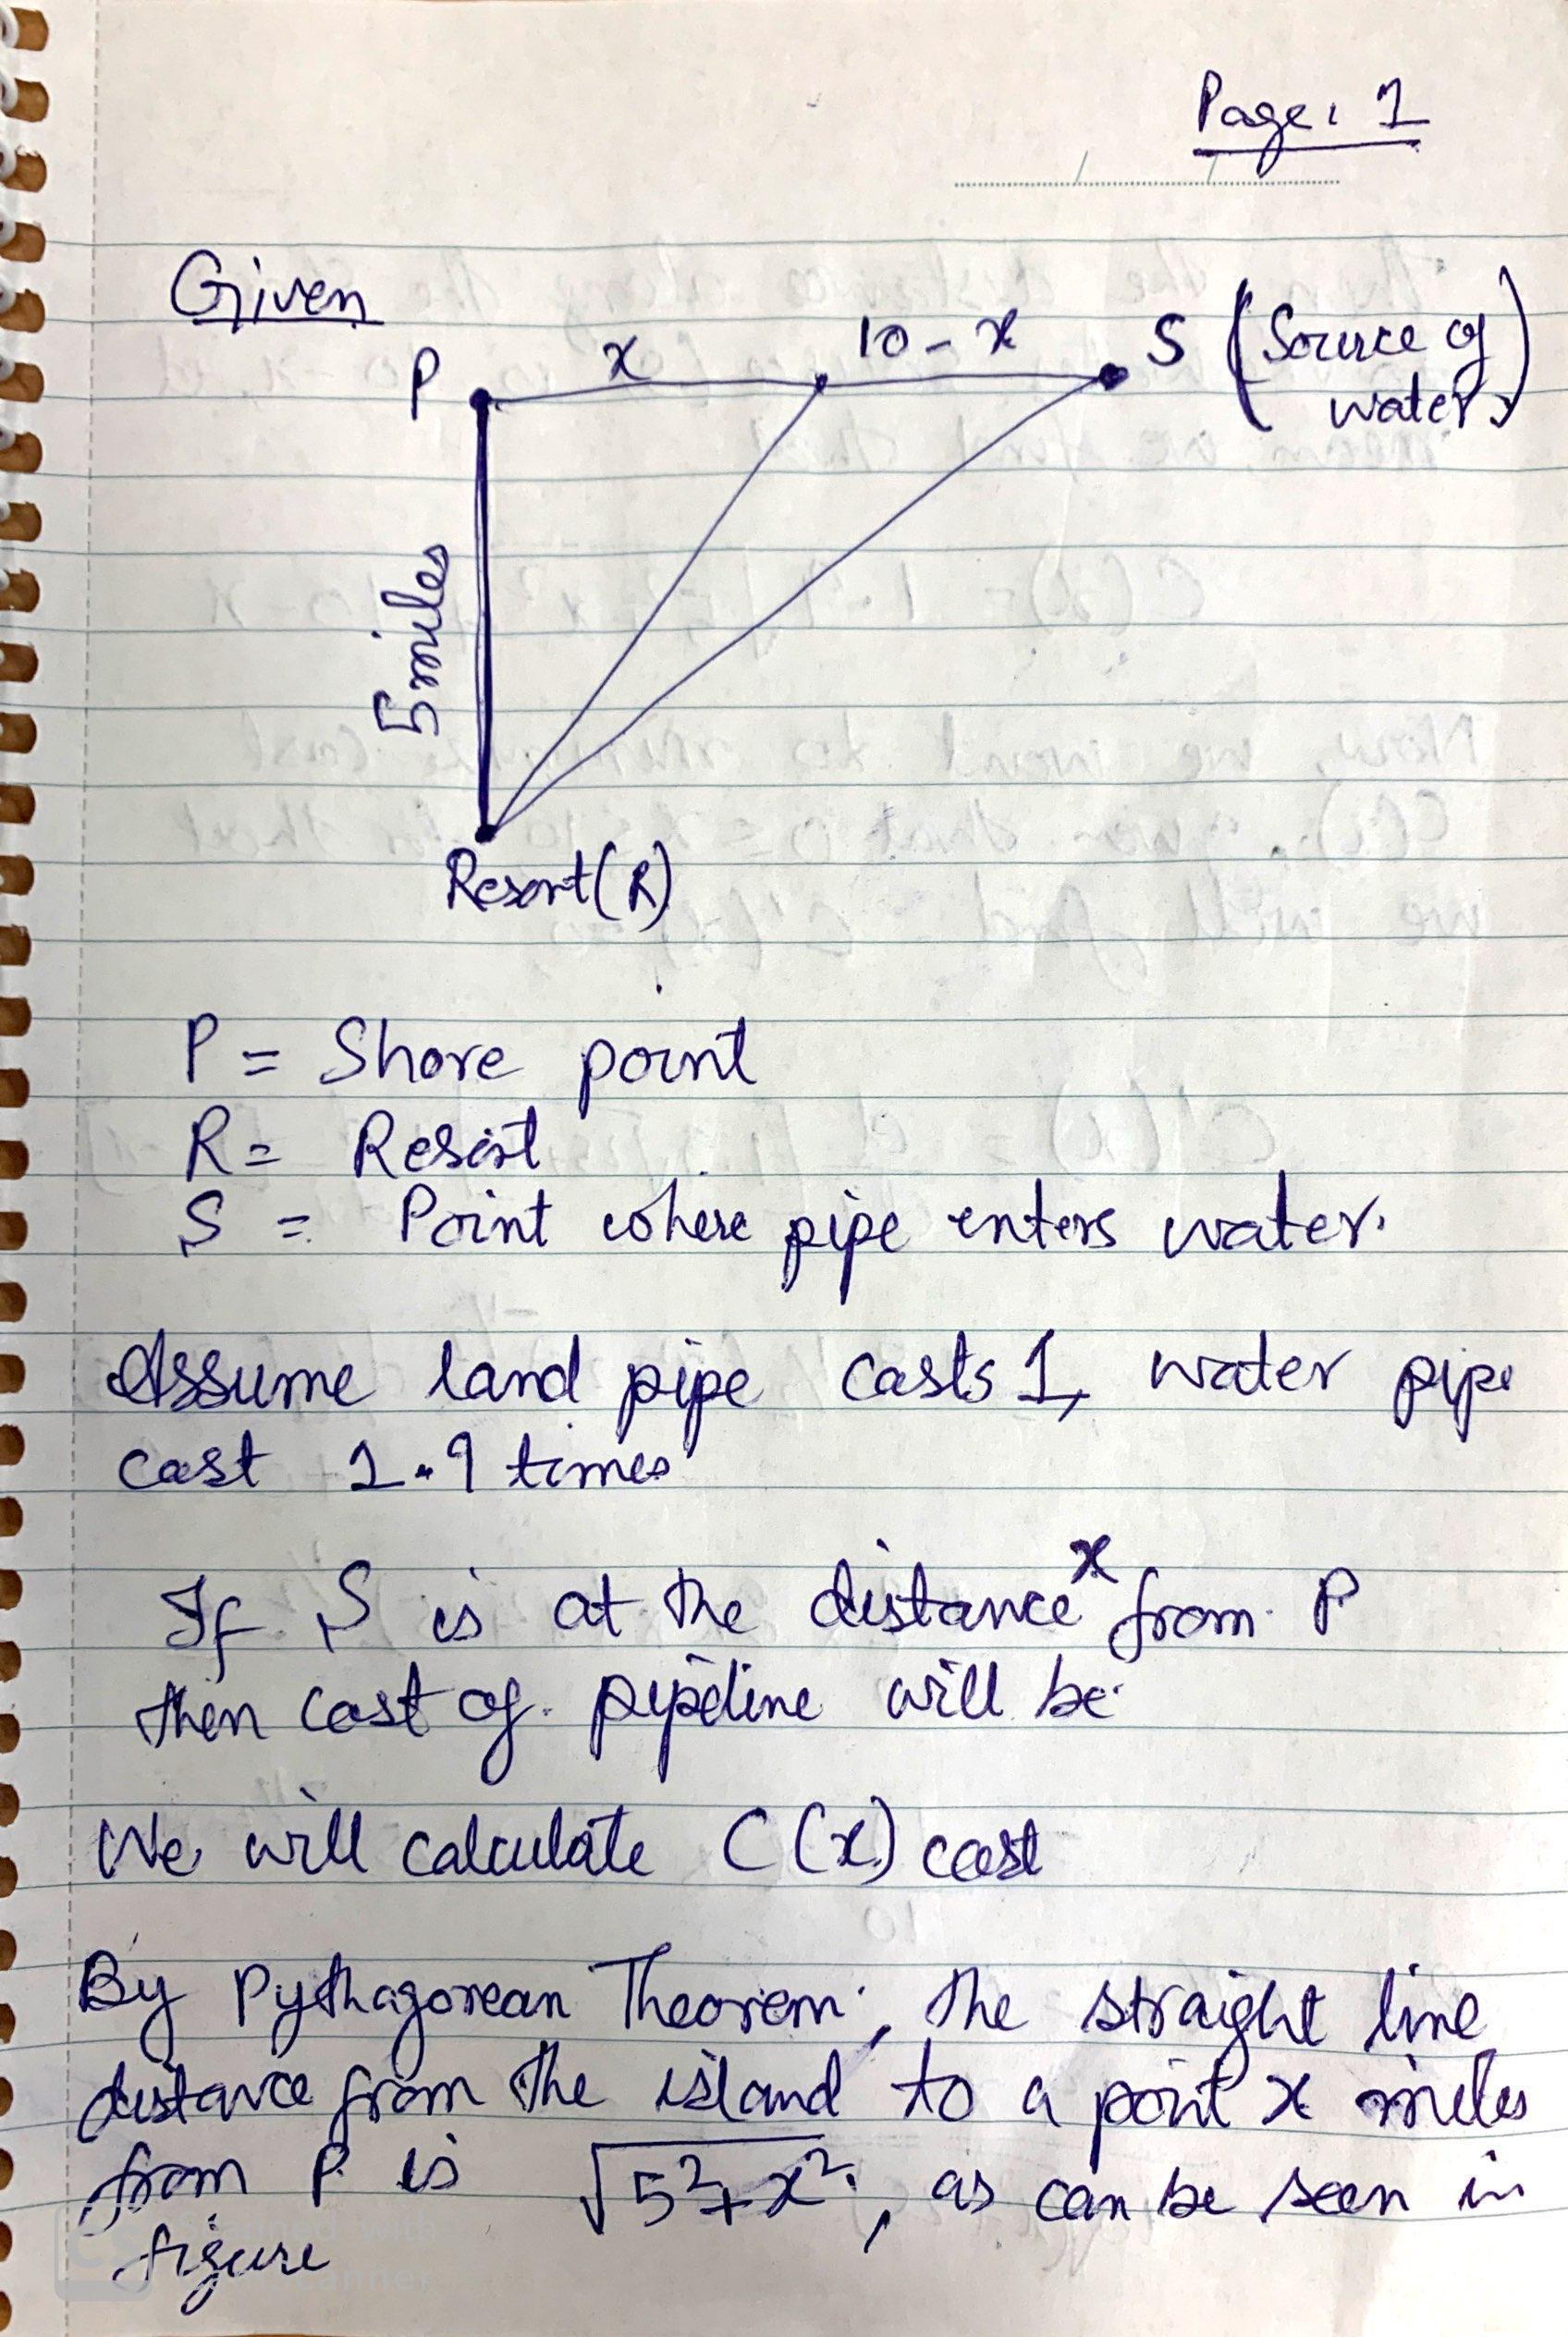 Page: 1
Given
P x 10-x S (Source of
water)
5 miles
Resort (R)
P = Shore point
R = Resort
S = Point where pipe enters water.
Assume land pipe costs 1, water pipe
cost 1.9 times
If S is at the distance x from P
then cost of pipeline will be
We will calculate C(x) cost
By Pythagorean Theorem, the straight line
distance from the island to a point x miles
from P is √5²+x², as can be seen in
figure